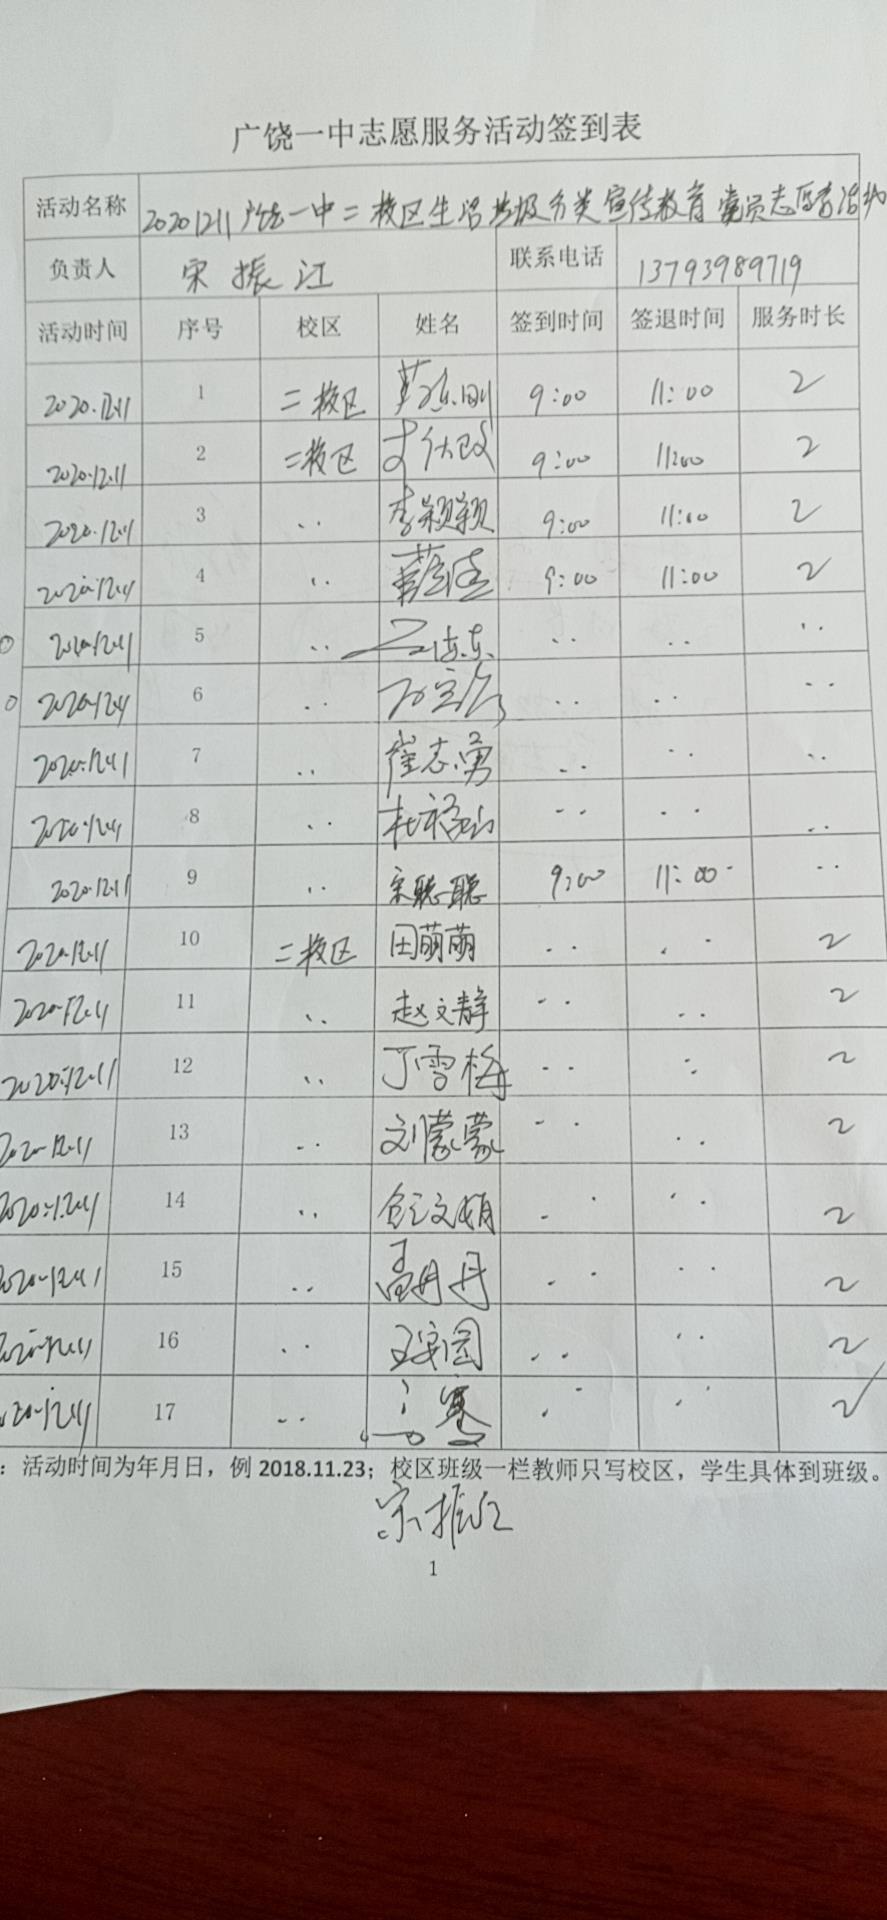 广饶一中志愿服务活动签到表
活动名称 20201211广饶一中二校区生活垃圾分类宣传教育党员志愿者活动
负责人 宋振江 联系电话 13793989719
活动时间 序号 校区 姓名 签到时间 签退时间 服务时长
2020.12.11 1 二校区 9:00 11:00 2
2020.12.11 2 二校区 9:00 11:00 2
2020.12.11 3 .. 李颖颖 9:00 11:00 2
2020.12.11 4 .. 9:00 11:00 2
2020.12.11 5 .. .. .. ..
2020.12.11 6 .. .. .. ..
2020.12.11 7 .. 崔志勇 .. .. ..
2020.12.11 8 .. 杜福山 .. .. ..
2020.12.11 9 .. 宋聪聪 9:00 11:00 ..
2020.12.11 10 二校区 田萌萌 .. .. 2
2020.12.11 11 .. 赵文静 .. .. 2
2020.12.11 12 .. 丁雪梅 .. .. 2
2020.12.11 13 .. 刘蒙蒙 .. .. 2
2020.12.11 14 .. .. .. 2
2020.12.11 15 .. 高丹丹 .. .. 2
2020.12.11 16 .. .. .. 2
2020.12.11 17 .. .. .. 2
：活动时间为年月日，例 2018.11.23；校区班级一栏教师只写校区，学生具体到班级。
宋振江
1